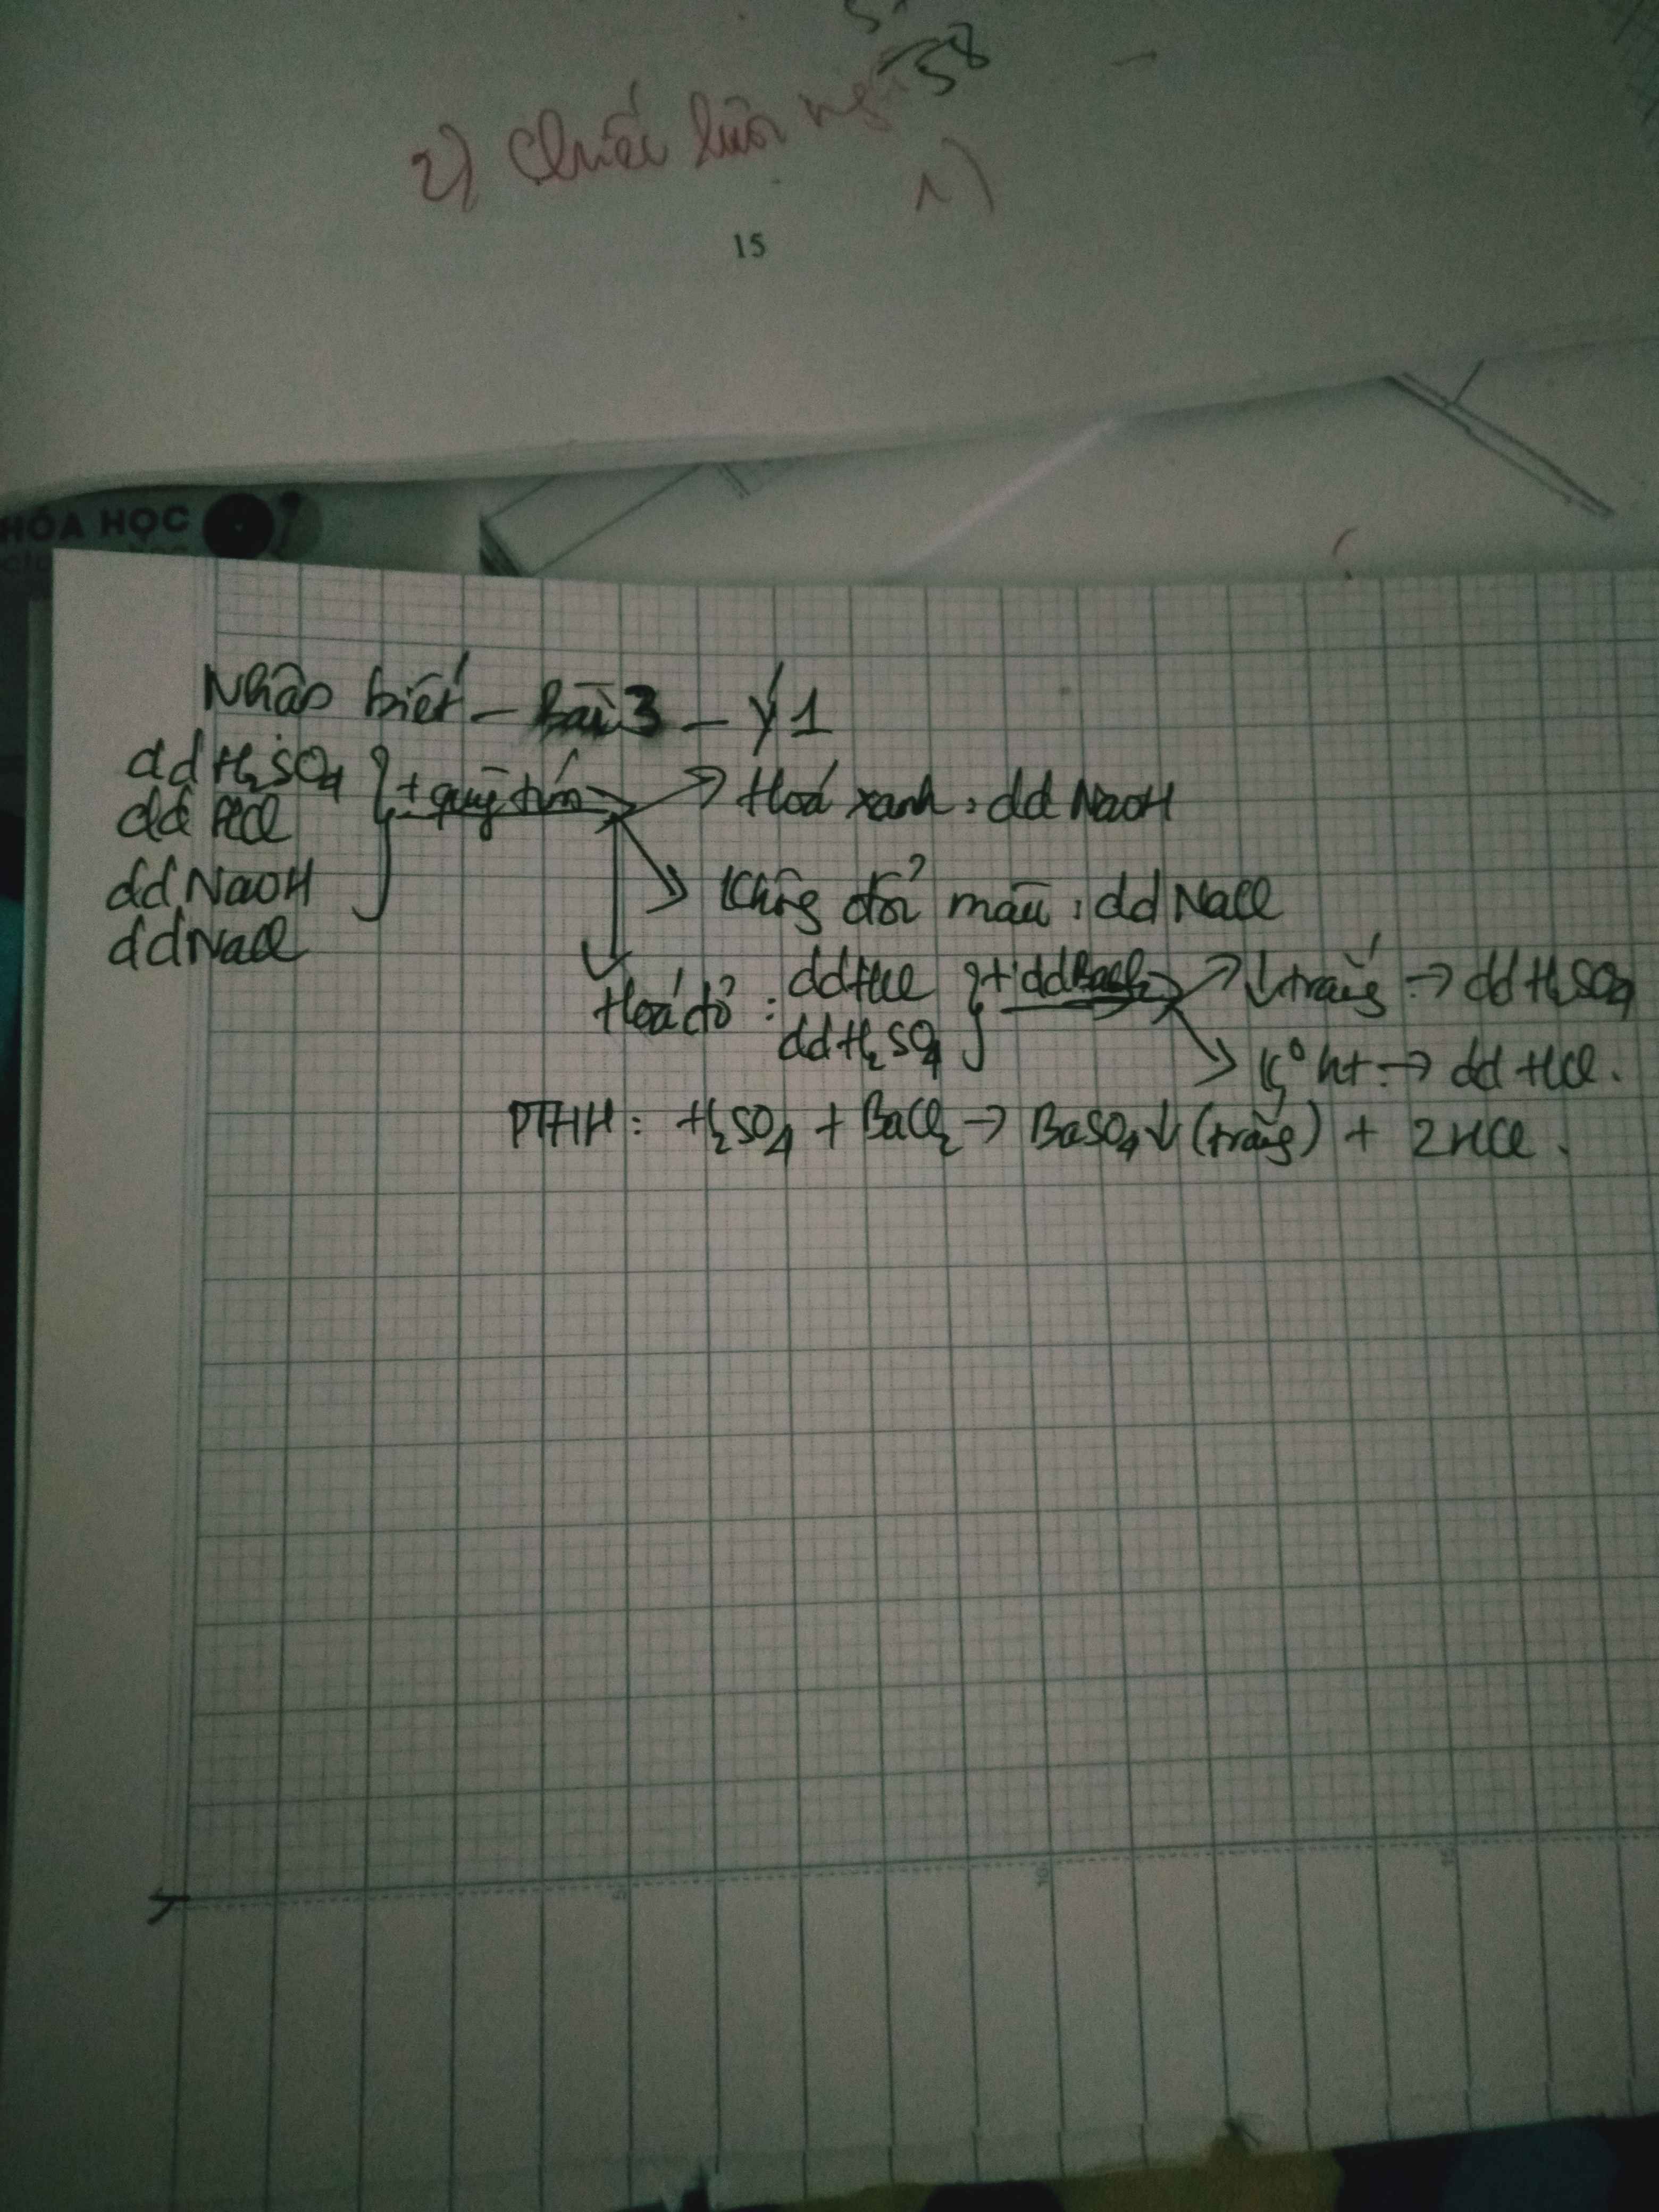 58
2) Chiếc lược ng
1)
15
HÓA HỌC
Nhận biết - Bài 3 - Ý 1
dd H₂SO₄
dd HCl
dd NaOH
dd NaCl
+ quỳ tím
Hoá xanh: dd NaOH
Không đổi màu: dd NaCl
Hoá đỏ: dd HCl
dd H₂SO₄
+ dd BaCl₂
↓ trắng → dd H₂SO₄
K° ht → dd HCl.
PTHH: H₂SO₄ + BaCl₂ → BaSO₄↓ (trắng) + 2HCl.
5
10
15